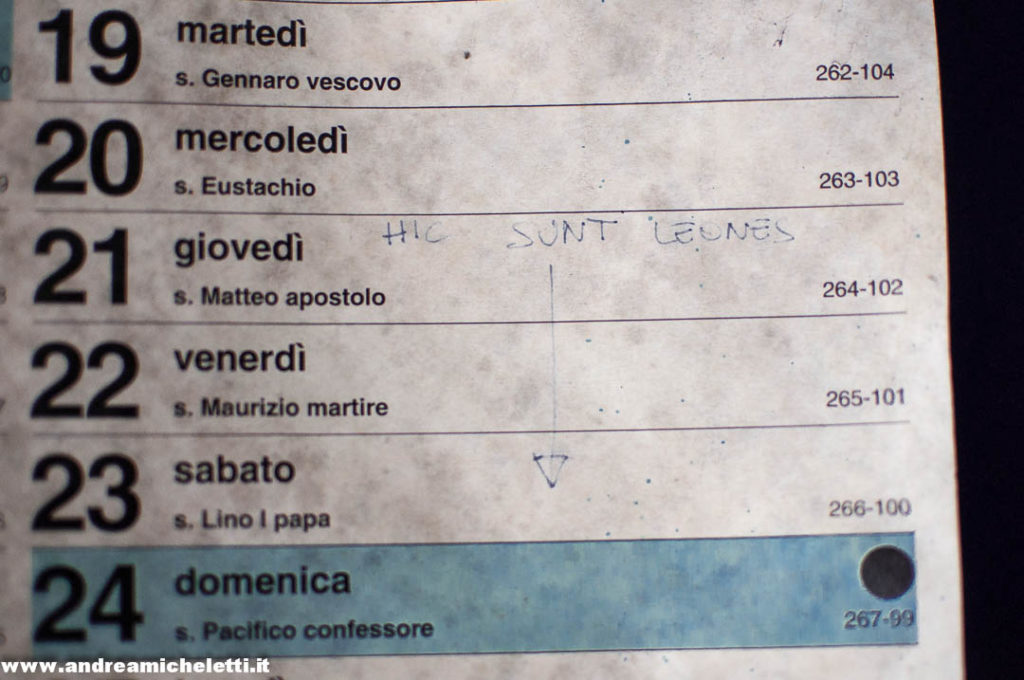 19 martedì
s. Gennaro vescovo 262-104
20 mercoledì
s. Eustachio 263-103
HIC SUNT LEONES
21 giovedì
s. Matteo apostolo 264-102
22 venerdì
s. Maurizio martire 265-101
23 sabato
s. Lino I papa 266-100
24 domenica
s. Pacifico confessore 267-99
www.andreamicheletti.it